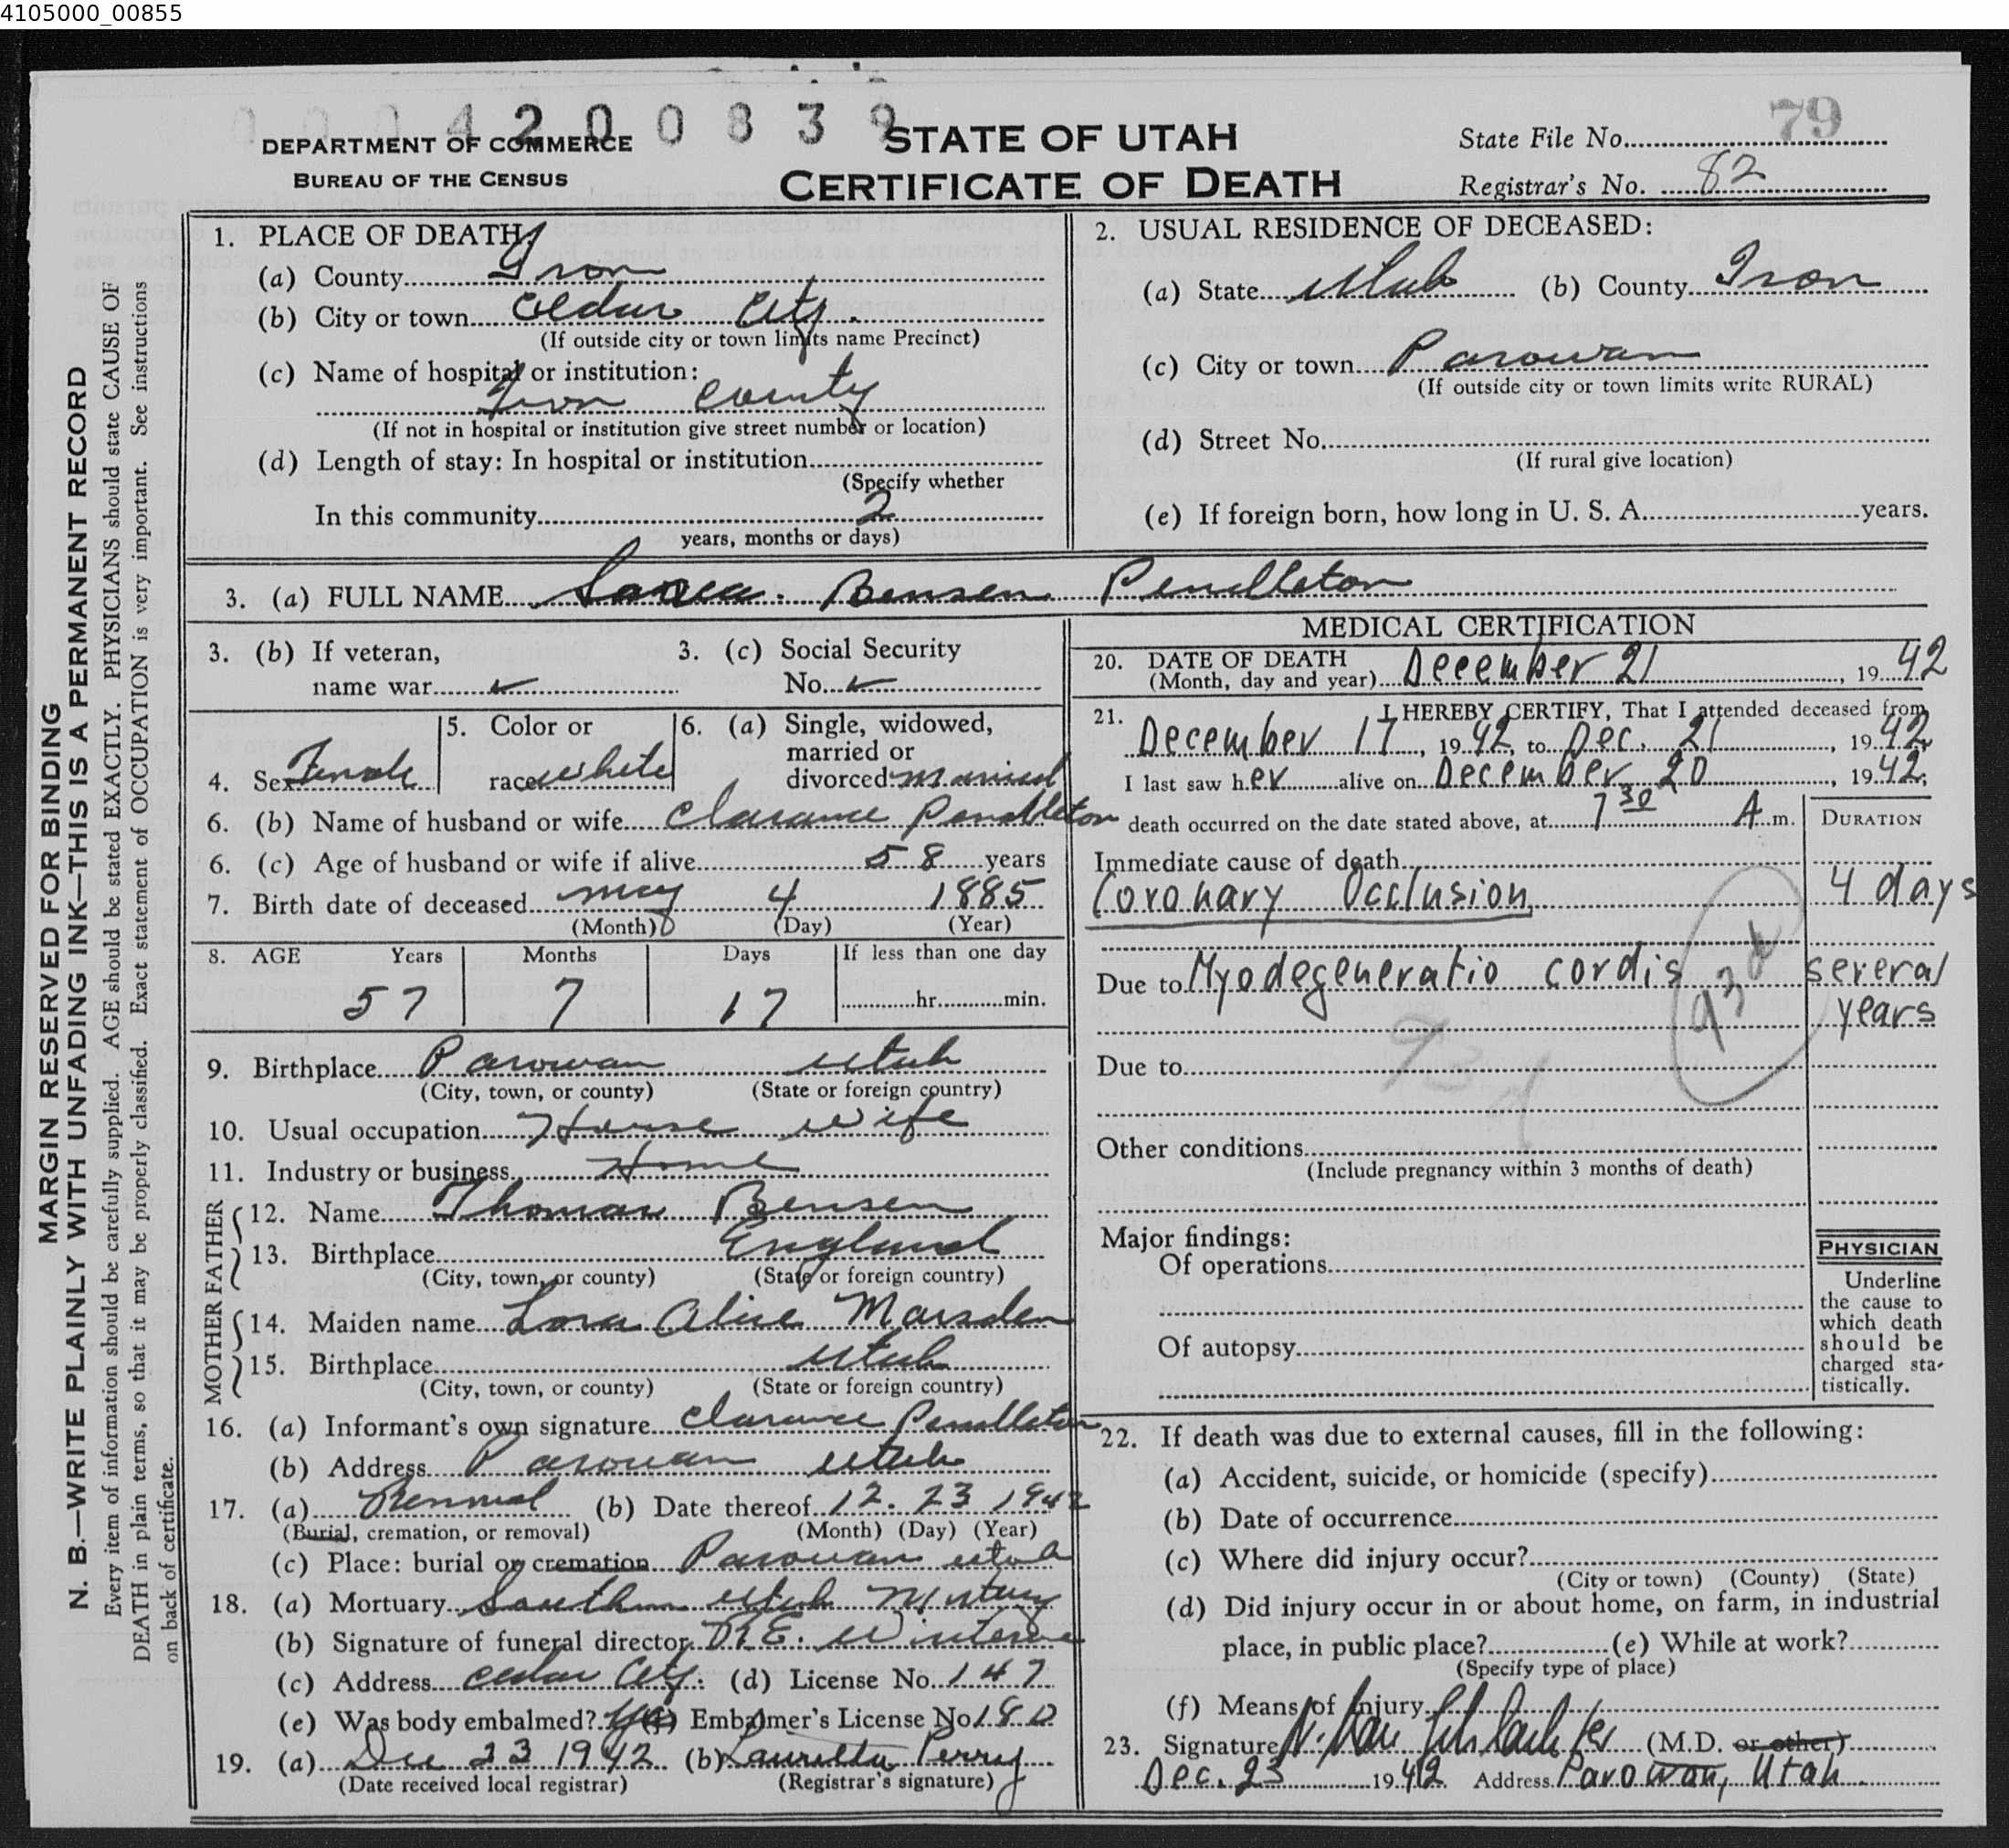 4105000_00855
0004200839
79
DEPARTMENT OF COMMERCE
BUREAU OF THE CENSUS
STATE OF UTAH
CERTIFICATE OF DEATH
State File No.
Registrar's No. 82
MARGIN RESERVED FOR BINDING
N. B.—WRITE PLAINLY WITH UNFADING INK—THIS IS A PERMANENT RECORD
Every item of information should be carefully supplied. AGE should be stated EXACTLY. PHYSICIANS should state CAUSE OF
DEATH in plain terms, so that it may be properly classified. Exact statement of OCCUPATION is very important. See instructions
on back of certificate.
1. PLACE OF DEATH:
(a) County Iron
(b) City or town Cedar City.
(If outside city or town limits name Precinct)
(c) Name of hospital or institution:
Iron County
(If not in hospital or institution give street number or location)
(d) Length of stay: In hospital or institution
(Specify whether
In this community 2
years, months or days)
2. USUAL RESIDENCE OF DECEASED:
(a) State Utah (b) County Iron
(c) City or town Parowan
(If outside city or town limits write RURAL)
(d) Street No.
(If rural give location)
(e) If foreign born, how long in U. S. A. years.
3. (a) FULL NAME Bensen Pendleton
3. (b) If veteran,
name war ✓
3. (c) Social Security
No. ✓
4. Sex Female
5. Color or
race white
6. (a) Single, widowed,
married or
divorced married
6. (b) Name of husband or wife Clarance Pendleton
6. (c) Age of husband or wife if alive 58 years
7. Birth date of deceased May 4 1885
(Month) (Day) (Year)
8. AGE Years Months Days If less than one day
57 7 17 hr. min.
9. Birthplace Parowan Utah
(City, town, or county) (State or foreign country)
10. Usual occupation House wife
11. Industry or business Home
FATHER
12. Name Thomas Bensen
13. Birthplace England
(City, town, or county) (State or foreign country)
MOTHER
14. Maiden name Lora Alice Marsden
15. Birthplace Utah
(City, town, or county) (State or foreign country)
16. (a) Informant's own signature Clarance Pendleton
(b) Address Parowan Utah
17. (a) Removal (b) Date thereof 12. 23 1942
(Burial, cremation, or removal) (Month) (Day) (Year)
(c) Place: burial or cremation Parowan Utah
18. (a) Mortuary Southern Utah Mortuary
(b) Signature of funeral director
(c) Address Cedar City. (d) License No. 147
(e) Was body embalmed? Yes (f) Embalmer's License No. 180
19. (a) Dec 23 1942 (b) Lauretta Perry
(Date received local registrar) (Registrar's signature)
MEDICAL CERTIFICATION
20. DATE OF DEATH
(Month, day and year) December 21, 1942
21. I HEREBY CERTIFY, That I attended deceased from
December 17, 1942, to Dec. 21, 1942,
I last saw her alive on December 20, 1942,
death occurred on the date stated above, at 7 30 A m.
DURATION
Immediate cause of death
Coronary Occlusion 4 days
Due to Myodegeneratio cordis several
years
93d
93d
Due to
Other conditions
(Include pregnancy within 3 months of death)
Major findings:
Of operations
Of autopsy
PHYSICIAN
Underline
the cause to
which death
should be
charged sta-
tistically.
22. If death was due to external causes, fill in the following:
(a) Accident, suicide, or homicide (specify)
(b) Date of occurrence
(c) Where did injury occur?
(City or town) (County) (State)
(d) Did injury occur in or about home, on farm, in industrial
place, in public place? (e) While at work?
(Specify type of place)
(f) Means of Injury
23. Signature (M.D. or other)
Dec. 23 1942 Address Parowan, Utah